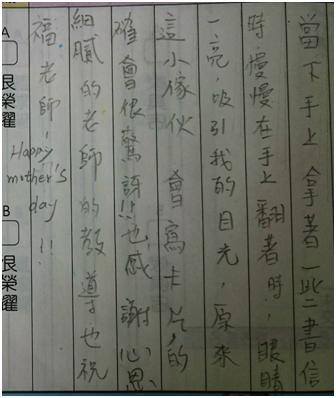 當下手上拿著一些書信
時,慢慢在手上翻著時,眼睛
一亮,吸引我的目光,原來
這小傢伙會寫卡片,的
確會很驚訝!!也感謝心思
細膩的老師的教導,也祝
福老師,Happy
mother's
day!!
A
艮
榮
耀
B
艮
榮
耀